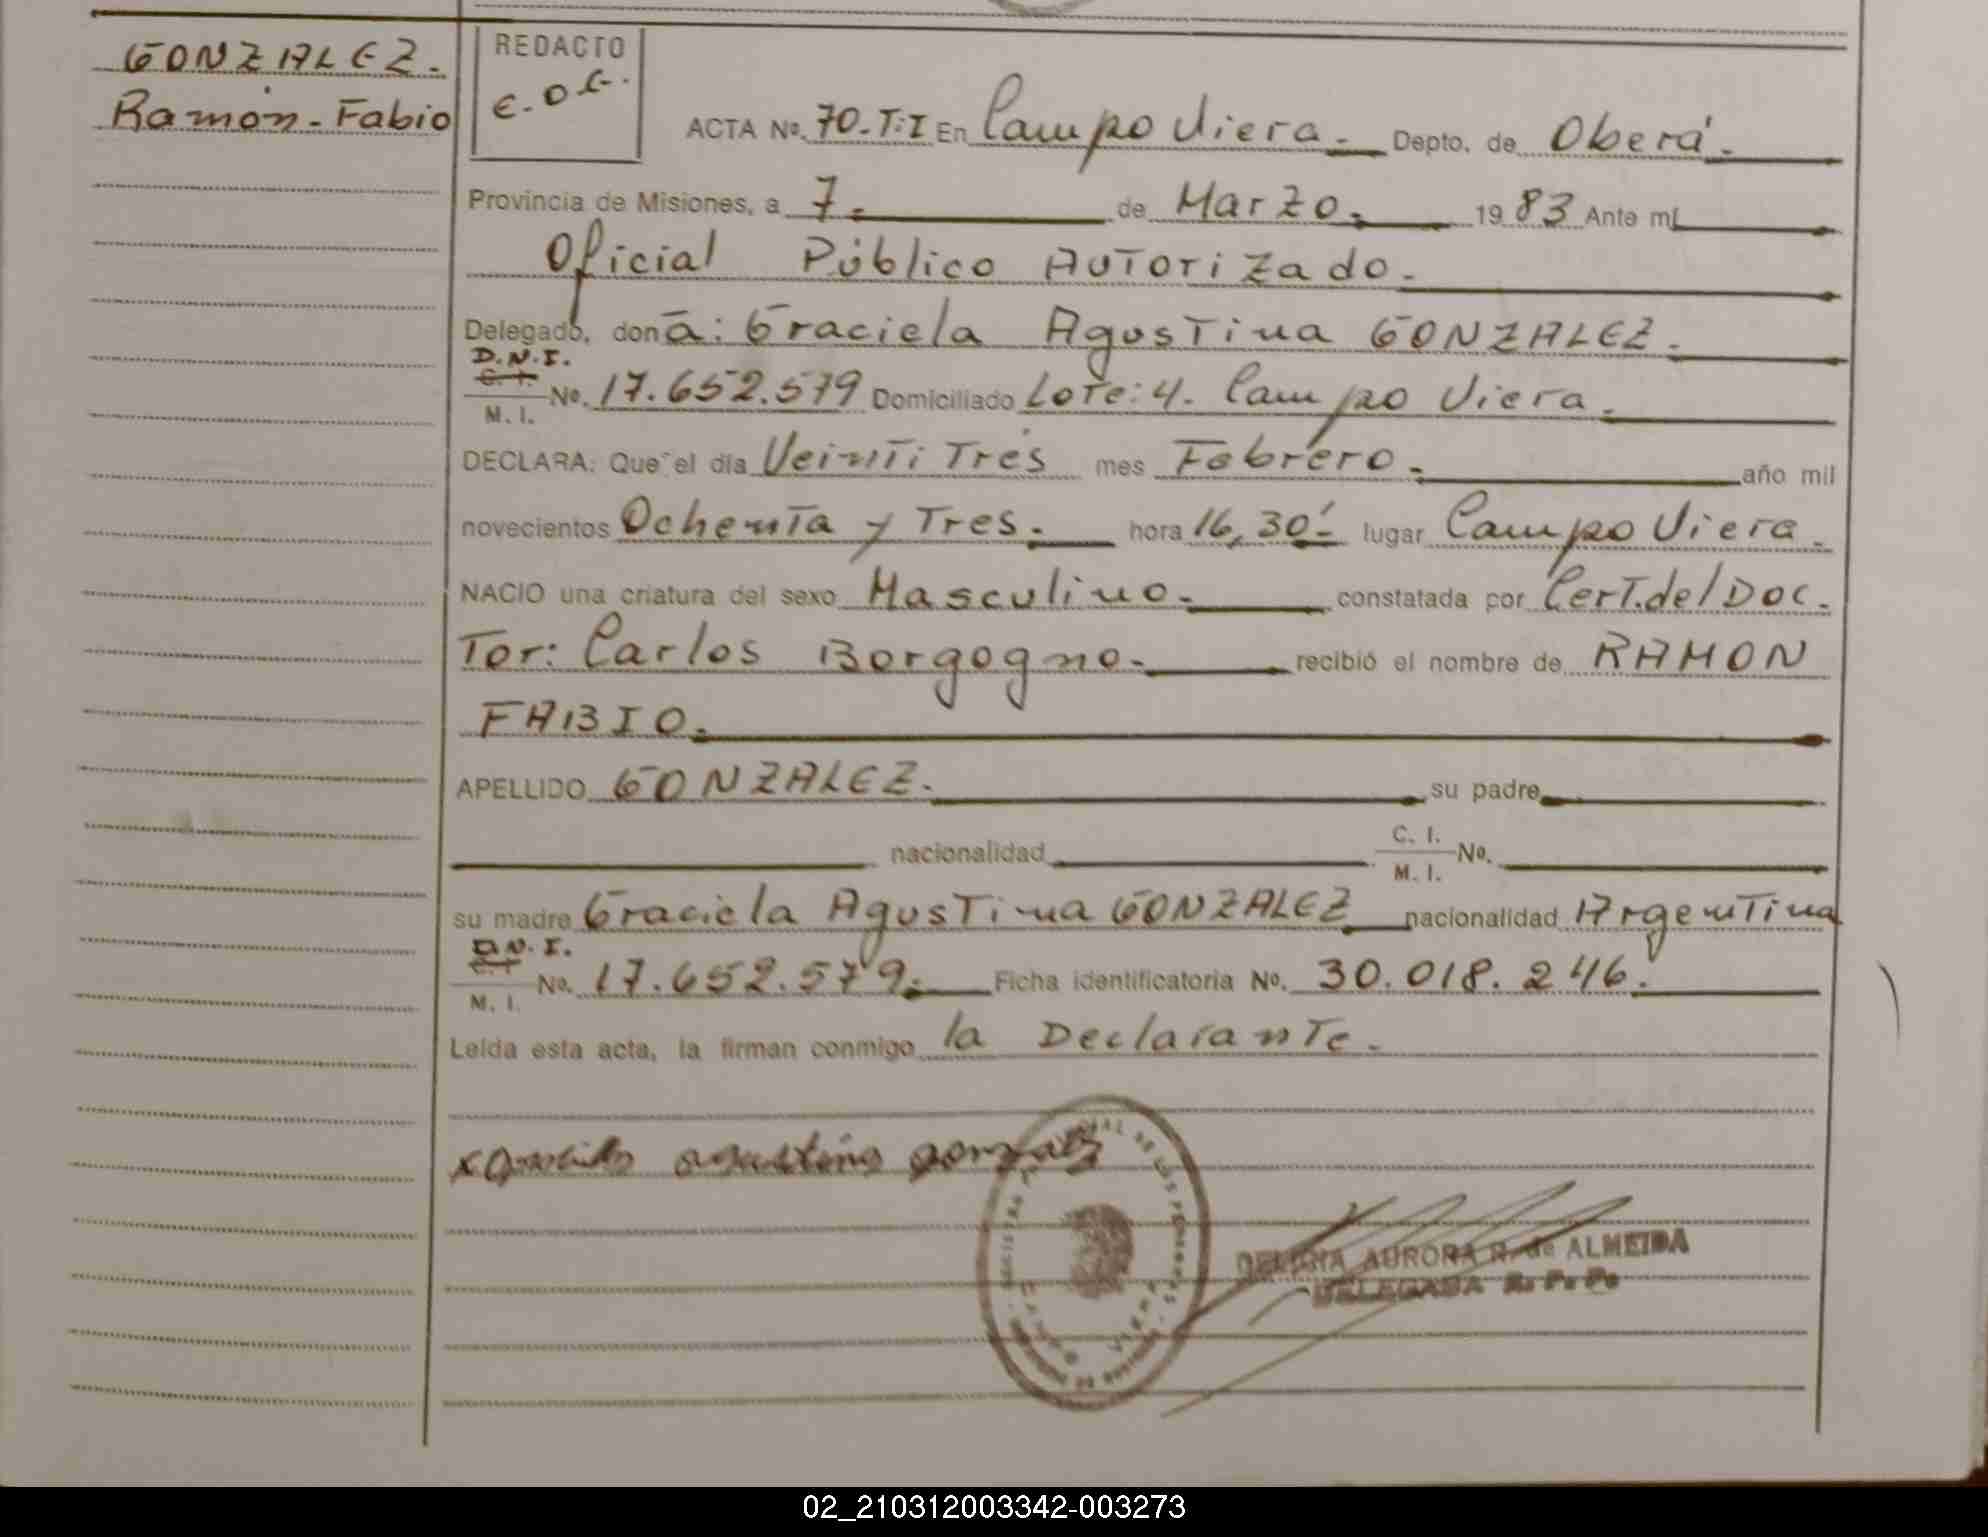 GONZALEZ.
Ramón-Fabio
REDACTO
ACTA Nº. 70-T:I En Campo Viera.- Depto. de Oberá.-
Provincia de Misiones, a 7. de Marzo. 1983 Ante mí
Oficial Público Autorizado.-
Delegado, donā: Graciela Agustina GONZALEZ.
D.N.I.
C. I.
M. I.
Nº. 17.652.579 Domiciliado Lote: 4. Campo Viera.
DECLARA: Que el día Veinti Trés mes Febrero. año mil
novecientos Ochenta y Tres. hora 16,30' lugar Campo Viera.
NACIO una criatura del sexo Masculino. constatada por Cert.del Doc.
Tor: Carlos Borgogno. recibió el nombre de RAMON
FABIO.
APELLIDO GONZALEZ. su padre
nacionalidad C. I.
M. I.
Nº.
su madre Graciela Agustina GONZALEZ nacionalidad Argentina
D.N.I.
C. I.
M. I.
Nº. 17.652.579. Ficha identificatoria Nº. 30.018.246.
Leída esta acta, la firman conmigo la Declarante.
agustina gonzalez
AURORA R. de ALMEIDA
DELEGADA R. P. P.
02_210312003342-003273